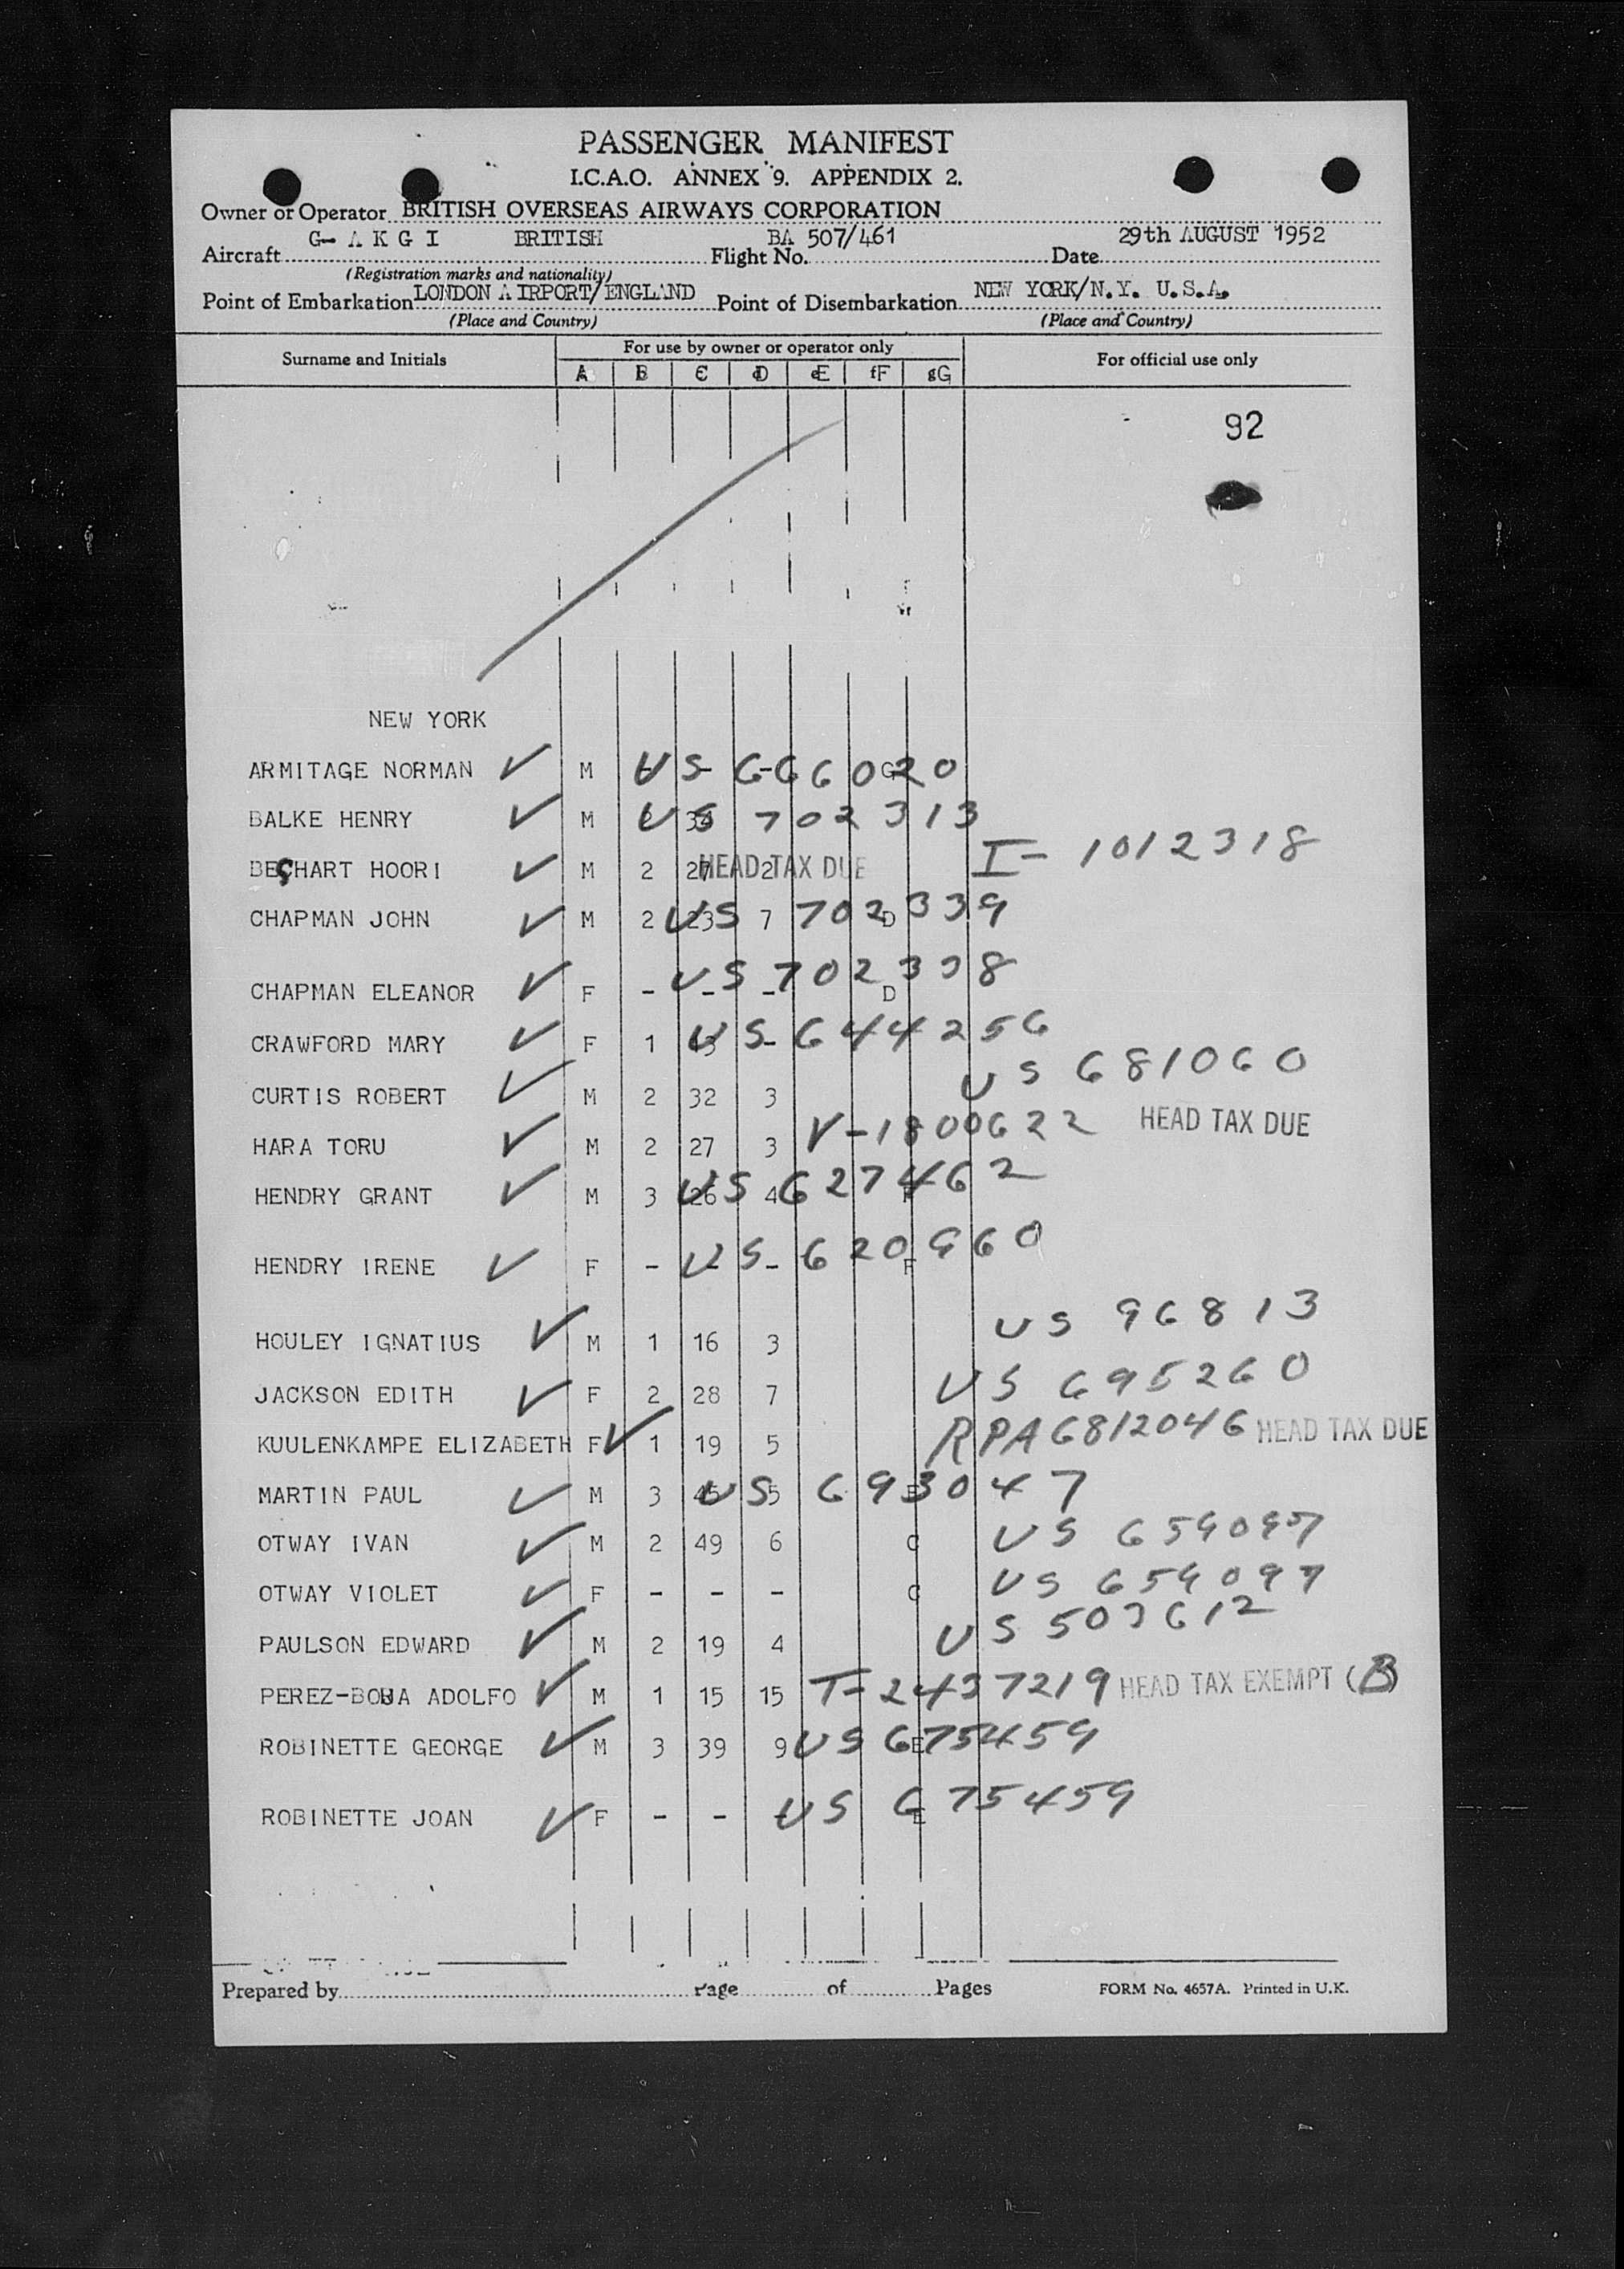 PASSENGER MANIFEST
I.C.A.O. ANNEX 9. APPENDIX 2.
Owner or Operator BRITISH OVERSEAS AIRWAYS CORPORATION
Aircraft G- A K G I BRITISH Flight No. BA 507/461 Date 29th AUGUST 1952
(Registration marks and nationality)
Point of Embarkation LONDON AIRPORT/ENGLAND Point of Disembarkation NEW YORK/N.Y. U.S.A.
(Place and Country) (Place and Country)
Surname and Initials For use by owner or operator only For official use only
A B C D E F G
92
NEW YORK
ARMITAGE NORMAN M - - - G US 666020
BALKE HENRY M US 702313
BEçHART HOORI M 2 27 2 HEAD TAX DUE I- 1012318
CHAPMAN JOHN M 2 23 7 D US 702339
CHAPMAN ELEANOR F - - - D US 702338
CRAWFORD MARY F 1 - US 644256
CURTIS ROBERT M 2 32 3 US 681060
HARA TORU M 2 27 3 V-1800622 HEAD TAX DUE
HENDRY GRANT M 3 26 4 F US 627462
HENDRY IRENE F - - - F US 620960
HOULEY IGNATIUS M 1 16 3 US 96813
JACKSON EDITH F 2 28 7 US 695260
KUULENKAMPE ELIZABETH F 1 19 5 RPA 6812046 HEAD TAX DUE
MARTIN PAUL M 3 45 5 US 693047
OTWAY IVAN M 2 49 6 C US 659097
OTWAY VIOLET F - - - C US 659097
PAULSON EDWARD M 2 19 4 US 503612
PEREZ-BOUA ADOLFO M 1 15 15 T-2437219 HEAD TAX EXEMPT (B)
ROBINETTE GEORGE M 3 39 9 E US 675459
ROBINETTE JOAN F - - - E US 675459
Prepared by Page of Pages FORM No. 4657A. Printed in U.K.